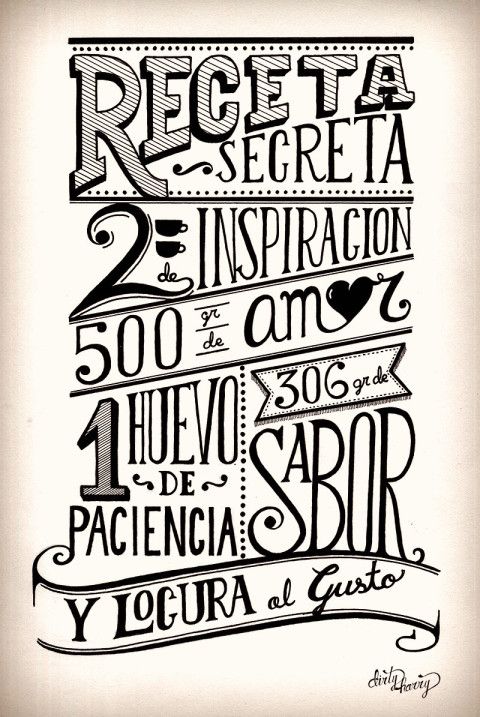 RECETA
SECRETA
2 de INSPIRACION
500 gr de amor
1 HUEVO
DE
PACIENCIA
306 gr de
SABOR
Y LOCURA al Gusto
dirty harry